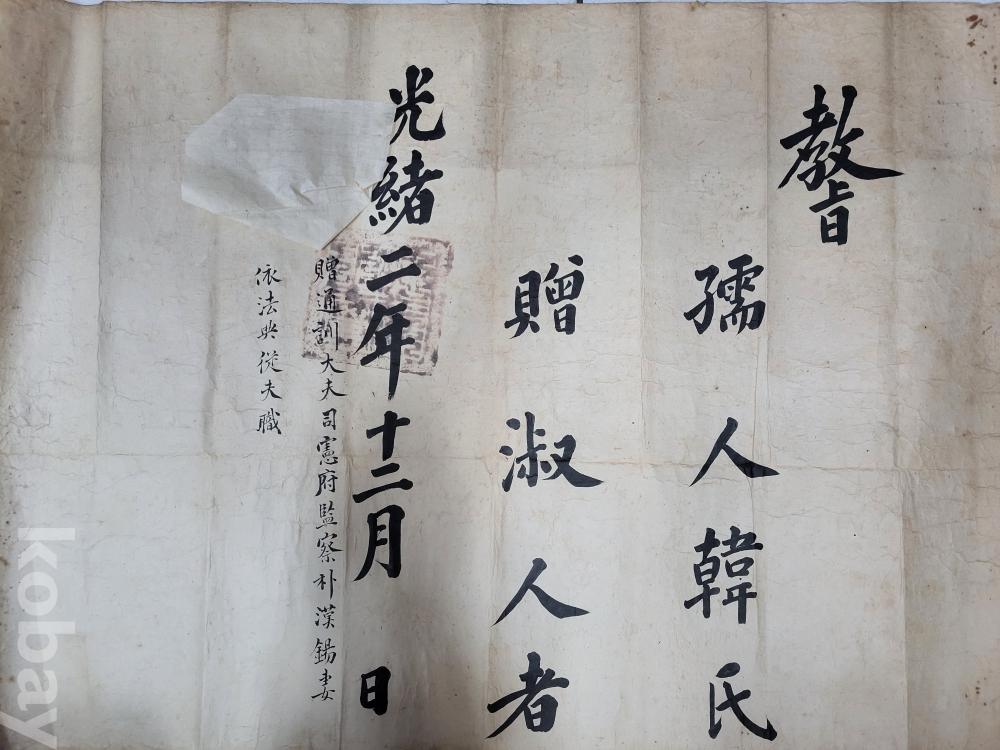 敎旨
孺人韓氏
贈淑人者
光緖二年十二月 日
贈通訓大夫司憲府監察朴漢錫妻
依法典從夫職
kobay